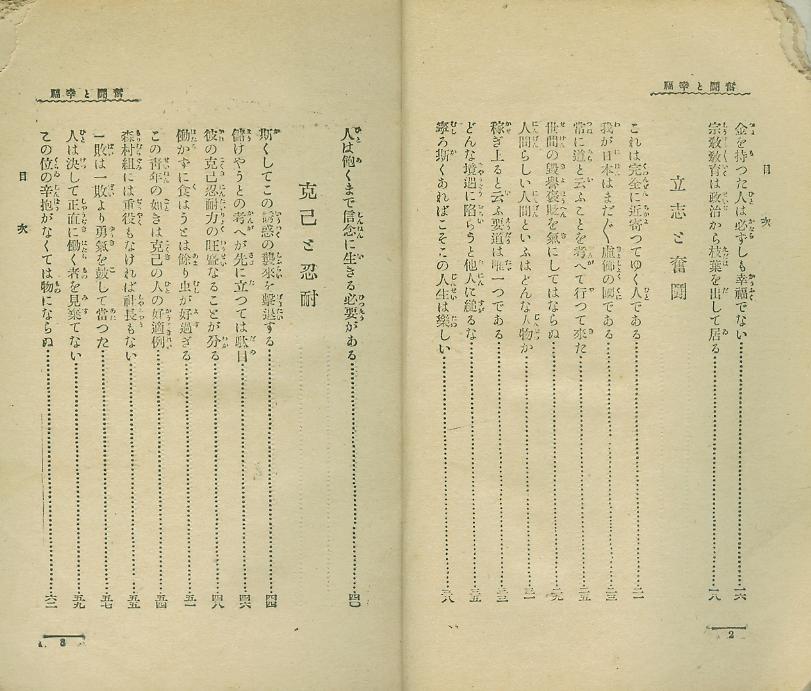 奮鬪と幸福
目次
金を持つた人は必ずしも幸福でない……一六
宗敎敎育は政治から枝葉を出して居る……一八
立志と奮鬪
これは完全に近寄つてゆく人である……二一
我が日本はまだ〳〵虛飾の國である……二三
常に道と云ふことを考へて行つて來た……二五
世間の毀譽褒貶を氣にしてはならぬ……二九
人間らしい人間といふはどんな人物か……三一
稼ぎ上ると云ふ要道は唯一つである……三三
どんな境遇に陷らうと他人に縋るな……三五
寧ろ斯くあればこそこの人生は樂しい……三八
2
奮鬪と幸福
人は飽くまで信念に生きる必要がある……四〇
克己と忍耐
斯くしてこの誘惑の襲來を擊退する……四四
儲けやうとの考へが先に立つては駄目……四六
彼の克己忍耐力の旺盛なることが分る……四八
働かずに食はうとは餘り虫が好過ぎる……五一
この靑年の如きは克己の人の好適例……五四
森村組には重役もなければ社長もない……五五
一敗は一敗より勇氣を鼓して當つた……五七
人は決して正直に働く者を見棄てない……五九
この位の辛抱がなくては物にならぬ……六二
目次
3